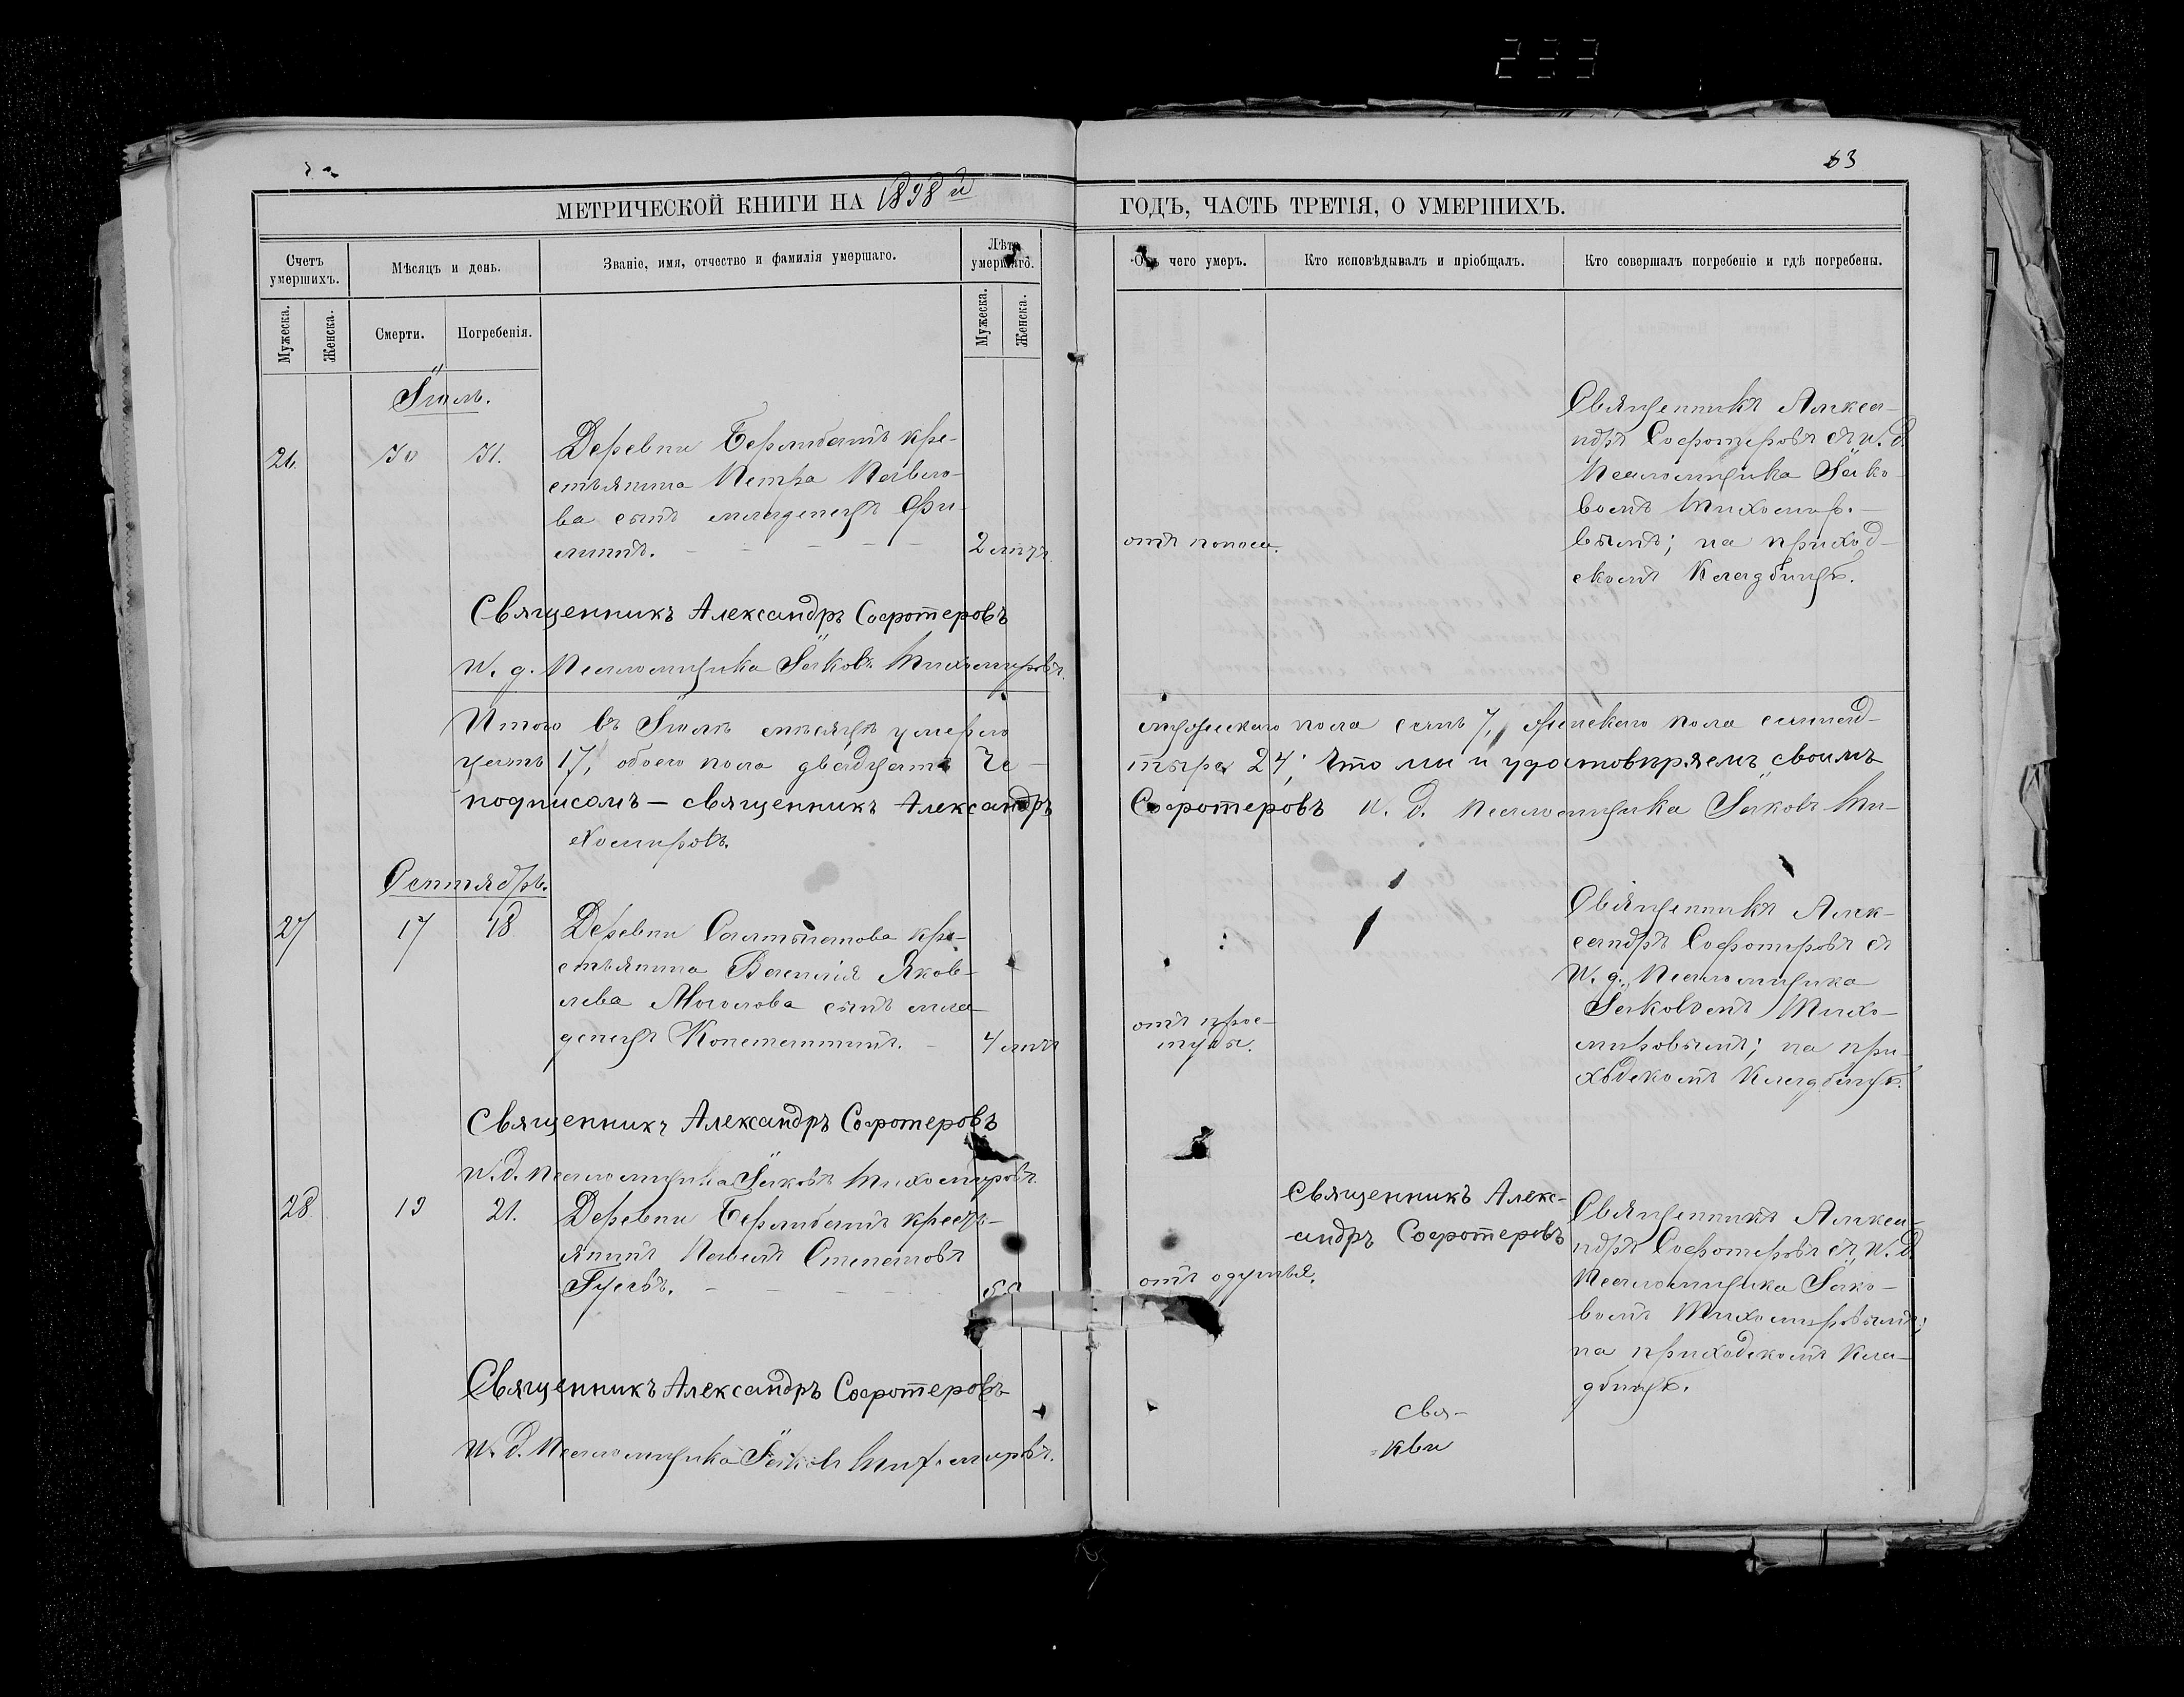 233
63
МЕТРИЧЕСКОЙ КНИГИ НА 1898й
ГОДЪ, ЧАСТЬ ТРЕТІЯ, О УМЕРШИХЪ.
Счетъ умершихъ.
Мѣсяцъ и день.
Званіе, имя, отчество и фамилія умершаго.
Лѣта умершаго.
Отъ чего умеръ.
Кто исповѣдывалъ и пріобщалъ.
Кто совершалъ погребеніе и гдѣ погребены.
Мужеска.
Женска.
Смерти.
Погребенія.
Мужеска.
Женска.
Іюль.
26.
30
31.
Деревни кре-
стьянина Петра Павло-
ва сынъ младенецъ Фи-
липпъ.
2 лѣтъ.
отъ поноса.
Священникъ Алекса-
ндръ Софотеровъ съ И. д.
Псаломщика Іако-
вомъ Тихомир.-
вымъ; на приход-
скомъ Кладбищѣ.
Священникъ Александръ Софотеровъ
И. д. Псаломщика Іаковъ Тихомировъ.
Итого въ Іюлѣ мѣсяцѣ умерло
мужескаго пола семь 7, женскаго пола семнад-
цать 17, обоего пола двадцать че-
тыре 24; Что мы и удостовѣряемъ своимъ
подписомъ – священникъ Александръ
Софотеровъ И. д. Псаломщика Іаковъ Ти-
хомировъ.
Сентябрь.
27
17
18
Деревни Салтыганова кре-
стьянина Василія Яков-
лева Моголова сынъ мла-
денецъ Константинъ.
4 лѣтъ
отъ прос-
туды.
Священникъ Алек-
сандръ Софотеровъ съ
И. д. Псаломщика
Іаковомъ Тихо-
мировымъ; на при-
ходскомъ Кладбищѣ.
Священникъ Александръ Софотеровъ
И. д. Псаломщика Іаковъ Тихомировъ.
28
19
21.
Деревни крест-
янинъ Павелъ Степановъ
Гусевъ.
отъ одушья.
Священникъ Алекс-
андръ Софотеровъ
Священникъ Алекса-
ндръ Софотеровъ съ И. д.
Псаломщика Іако-
вомъ Тихомировымъ;
на приходскомъ Кла-
дбищѣ.
Священникъ Александръ Софотеровъ
И. д. Псаломщика Іаковъ Тихомировъ.
свя-
кви